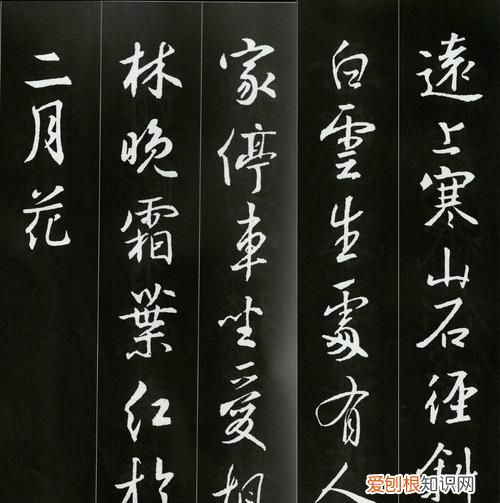 遠上寒山石徑斜
白雲生處有人
家停車坐愛楓
林晚霜葉紅於
二月花
爱刨根知识网